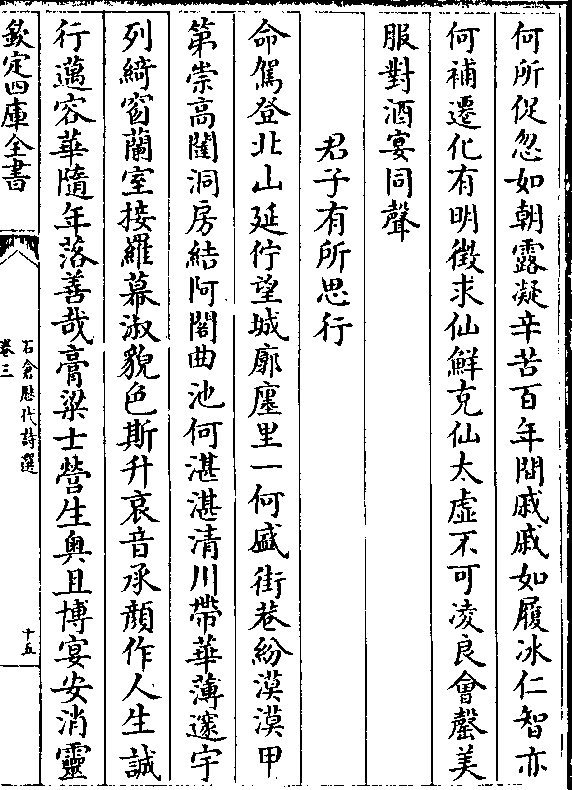 何所促忽如朝露凝辛苦百年間戚戚如履冰仁智亦
何補遷化有明徴求仙鮮克仙太虛不可凌良會罄美
服對酒宴同聲
君子有所思行
命駕登北山延佇望城廓廛里一何盛街巷紛漠漠甲
第崇高闥洞房結阿閣曲池何湛湛清川帶華薄邃宇
列綺窗蘭室接羅幕淑貌色斯升哀音承顔作人生誠
行邁容華隨年落善哉膏粱士營生奧且博宴安消靈
欽定四庫全書
石倉歴代詩選
卷三
十五